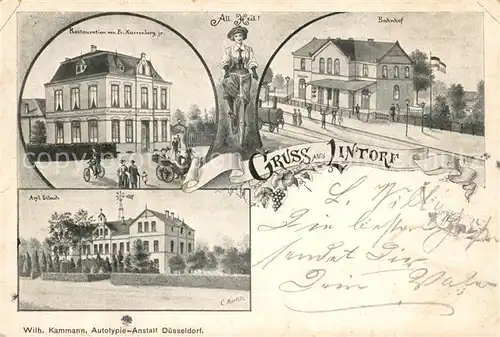 Restauration von Fr. Karrenberg jr.
All Heil!
Bahnhof
Gruss aus Lintorf
Asyl Siloah
Die
sendet Dir
Dein Vater
Wilh. Kammann, Autotypie-Anstalt Düsseldorf.